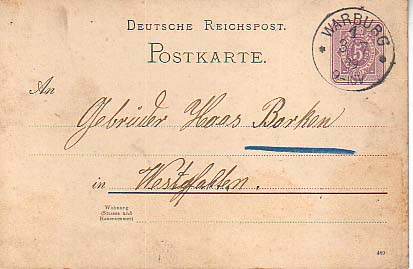 DEUTSCHE REICHSPOST.
POSTKARTE.
WARBURG
5
An
Gebrüder Haas Borken
in Westfalen.
Wohnung
(Strasse und
Hausnummer)